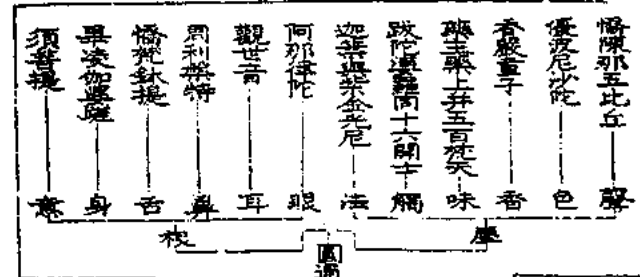 憍陳那五比丘 聲
優波尼沙陀 色
香嚴童子 香
藥王藥上并五百梵天 味
跋陀婆羅同十六開士 觸
迦葉與紫金光尼 法
阿那律陀 眼
觀世音 耳
周利槃特 鼻
憍梵鉢提 舌
畢凌伽婆蹉 身
須菩提 意
塵
根
圓通